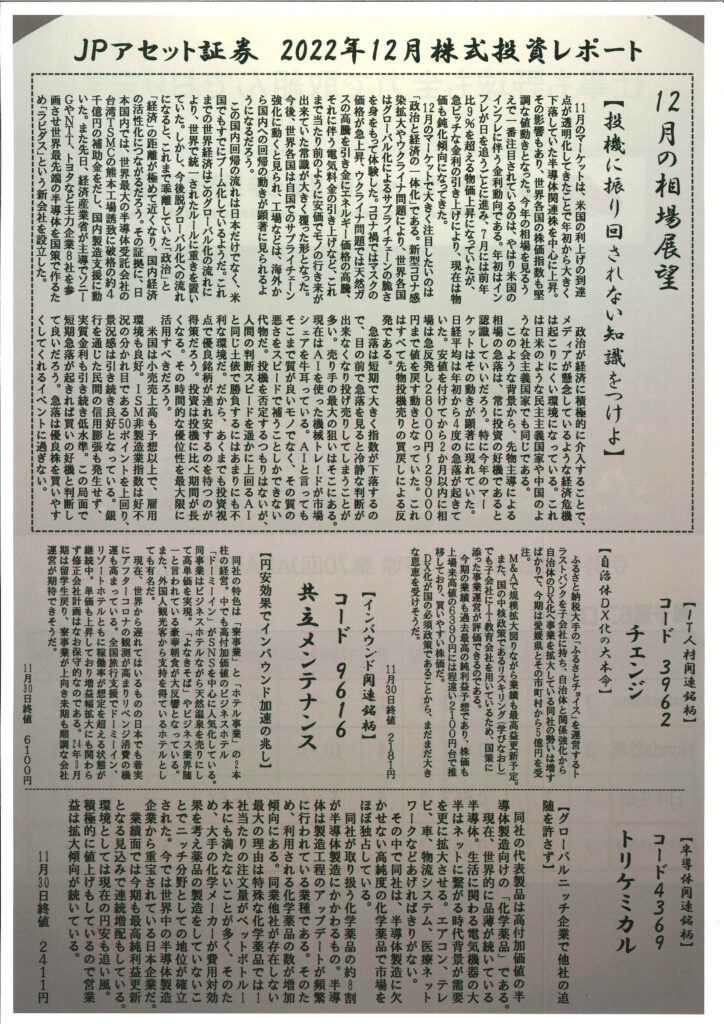 JPアセット証券　2022年12月株式投資レポート
12月の相場展望
【投機に振り回されない知識をつけよ】
11月のマーケットは、米国の利上げの到達
点が透明化してきたことで年初から大きく
下落していた半導体関連株を中心に上昇。
その影響もあり、世界各国の株価指数も堅
調な値動きとなった。今年の相場を見るう
えで一番注目されているのは、やはり米国の
インフレに伴う金利動向である。年初はイン
フレが日を追うごとに進み、7月には前年
比9%を超える物価上昇になっていたが、
急ピッチな金利の引き上げにより、現在は物
価も鈍化傾向になってきた。
12月のマーケットで大きく注目したいのは
「政治と経済の一体化」である。新型コロナ感
染拡大やウクライナ問題により、世界各国
はグローバル化によるサプライチェーンの脆さ
を身をもって体験した。コロナ禍ではマスクの
価格が急上昇、ウクライナ問題では天然ガ
スの高騰を引き金にエネルギー価格の高騰、
それに伴う電気料金の引き上げなど、これ
まで当たり前のように安価でモノの行き来が
出来ていた常識が大きく覆った形となった。
今後、世界各国は自国でのサプライチェーン
強化に動くと見られ、工場などは、海外か
ら国内への回帰の動きが顕著に見られるよ
うになるだろう。
この国内回帰の流れは日本だけでなく、米
国でもすでにブーム化しているようだ。これ
までの世界経済はこのグローバル化の流れに
より、世界で統一されたルールに重きを置い
ていた。しかし、今後脱グローバル化への流れ
になると、これまで乖離していた「政治」と
「経済」の距離が極めて近くなり、国内経済
の活性化につながるだろう。その証拠に、日
本国内では、世界最大の半導体受託会社の
台湾TSMCの熊本工場誘致に破格の約4
千億円の補助金をだし、国内製造支援に動
いた。また先日、経済産業省が主導でソニー
GやNTT、トヨタなど主力企業8社を参
画させ世界最先端の半導体を国策で作るた
め「ラピダス」という新会社を設立した。
政治が経済に積極的に介入することで、
メディアが懸念しているような経済危機
は起こりにくい環境になっている。これ
は日米のような民主主義国家や中国のよ
うな社会主義国家でも同じである。
このような背景から、先物主導による
相場の急落は、常に投資の好機であると
認識していいだろう。特に今年のマー
ケットはその動きが顕著に現れていた。
日経平均は年初から4度の急落が起きて
いた。安値を付けてから2か月以内に相
場は急反発し28000円～29000
円まで値を戻す動きとなっていた。これ
はすべて先物投機売りの買戻しによる反
発である。
急落は短期で大きく指数が下落するの
で、目の前で急落を見ると冷静な判断が
出来なくなり投げ売りしてしまうことが
多い。売り手の最大の狙いはそこにある。
現在はAIを使った機械トレードが市場
シェアを牛耳っている。AIと言っても
そこまで質が良いモノでなく、その質の
悪さをスピードで補うことしかできない
代物だ。投機を否定するつもりはないが、
人間の判断スピードを遥かに上回るAI
と同じ土俵で勝負するにはあまりにも不
利な環境だ。だから、あくまでも投資視
点で優良銘柄が連れ安するのを待つのが
得策だろう。投資は投機に比べ期間が長
くなる。その時間的な優位性を最大限に
活用すべきだろう。
米国は小売売上高も予想以上で、雇用
環境も良好。ISM非製造業指数は好不
況の分かれ目である50ポイントを上回り、
景況感は引き続き良好となっている。銀
行を通じた民間の信用膨張も発生せず、
実質金利も引き続き低水準。この局面で
短期急落が起きれば買いの好機と判断し
て良いだろう。急落は優良株を買いやす
くしてくれるイベントに過ぎない。
【IT人材関連銘柄】
コード 3962
チェンジ
【自治体DX化の大本命】
ふるさと納税大手の「ふるさとチョイス」を運営するト
ラストバンクを子会社に持ち、自治体と関係強化から
自治体のDX化へ事業を拡大している同社の勢いは増す
ばかりで、今期は愛媛県とその市町村から5億円を受
注。
M&Aで規模拡大図りながら業績も最高益更新予定。
また、国の中核政策であるリスキリング(学びなおし)
でもIT子会社にIT教育会社を用いているため、国策に
添った事業運営が評価できるところである。
今期の業績も過去最高の純利益予想であり、株価も
上場来高値の6390円には程遠い2100円台で推
移しており、買いやすい株価だ。
DX化が国の必須政策であることから、まだまだ大き
な恩恵を受けそうだ。
11月30日終値　2181円
【インバウンド関連銘柄】
コード 9616
共立メンテナンス
【円安効果でインバウンド加速の兆し】
同社の特色は「寮事業」と、「ホテル事業」の2本
柱の経営。中でも高付加価値のビジネスホテル
「ドーミーイン」がSNSを中心に人気化している。
同事業はビジネスホテルながら天然温泉を売りにし
て高単価を実現。「よなきそば」やビジネス業界随
一と言われている豪華朝食が大反響となっている。
また、外国人観光客から支持を得ているホテルとし
ても有名だ。
現在、世界から遅れてはいるものの日本でも着実
にアフターコロナの観測が高まりリベンジ消費の機
運も高まっている。全国旅行支援でドーミーイン、
リゾートホテルともに稼働率が想定を超える状態が
継続中。単価も上昇しており増益幅拡大にも関わら
ず修正会社計画はなお保守的なのである。24年3月
期は留学生戻り、寮事業が上向き来期も順調な会社
運営が期待できそうだ。
11月30日終値　6100円
【半導体関連銘柄】
コード4369
トリケミカル
【グローバルニッチ企業で他社の追
随を許さず】
同社の代表製品は高付加価値の半
導体製造向けの「化学薬品」である。
現在、世界的に品薄が続いている
半導体。生活に関わる電気機器の大
半はネットに繋がる時代背景が需要
を更に拡大させる。エアコン、テレ
ビ、車、物流システム、医療ネット
ワークなどあげれば余りがない。
その中で同社は、半導体製造に欠
かせない高純度の化学薬品で市場を
ほぼ独占している。
同社が取り扱う化学薬品の約8割
が半導体製造にかかわるもの。半導
体は製造工程のアップデートが頻繁
に行われている業種である。そのた
め、利用される化学薬品の数が増加
傾向にある。同業他社が存在しない
最大の理由は特殊な化学薬品では1
社当たりの注文量がペットボトル1
本にも満たないことが多く、そのた
め、大手の化学メーカーが費用対効
果を考え薬品の製造をしていないこ
とでニッチ分野としての地位が確立
された。今では世界中の半導体製造
企業から重宝されている日本企業だ。
業績面では今期も最高純利益更新
となる見込みで連続増配もしている。
環境としては現在の円安も追い風。
積極的に値上げもしているので営業
益は拡大傾向が続いている。
11月30日終値　2411円